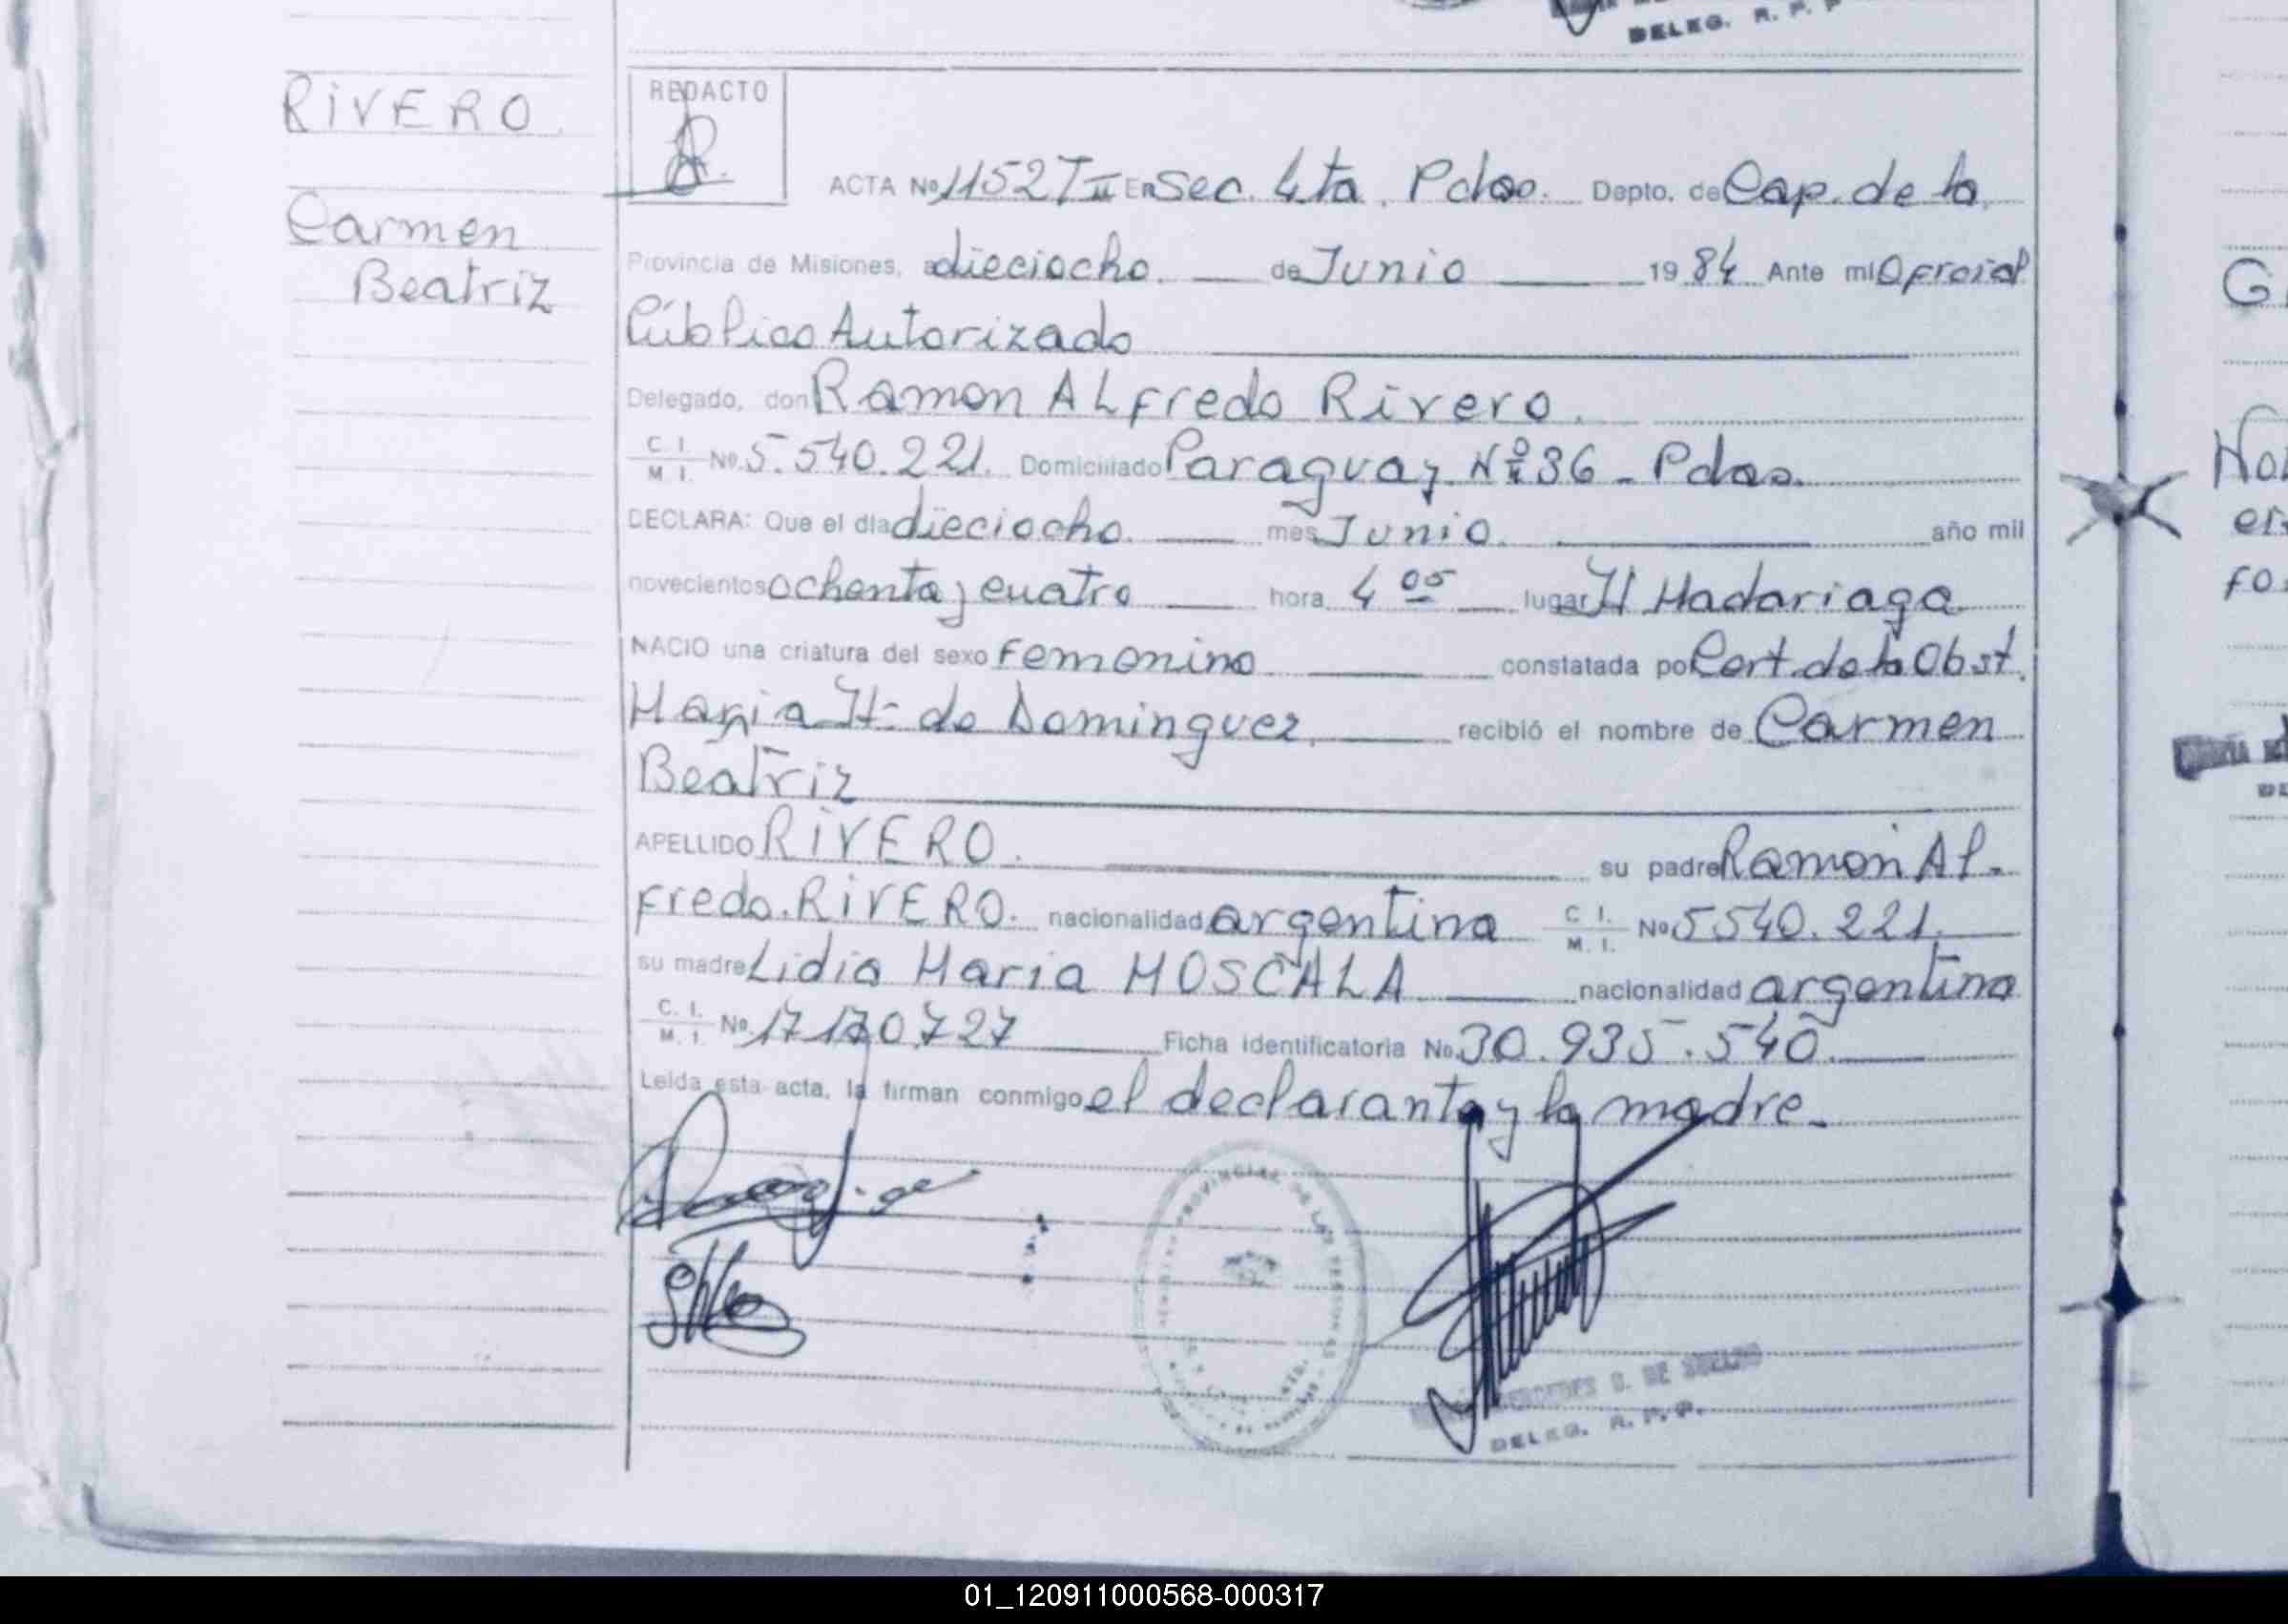 DELEG. R. P. P
RIVERO
Carmen
Beatriz
REDACTO
ACTA No 1152 T II En Sec. 4ta. Pdas. Depto. de Cap. de la
Provincia de Misiones, a dieciocho. de Junio 19 84 Ante mi Oficial
Público Autorizado
Delegado, don Ramon ALfredo Rivero.
C. I.
M. I. No. 5.540.221. Domiciliado Paraguay Nº 36 - Pdas.
DECLARA: Que el día dieciocho. mes Junio. año mil
novecientos ochenta y cuatro hora 4 05 lugar H Madariaga
NACIO una criatura del sexo Femenino constatada po Cert. de la Obst.
Maria H. de Dominguez, recibió el nombre de Carmen
Beatriz
APELLIDO RIVERO. su padre Ramon Al-
fredo. RIVERO. nacionalidad argentina C I. M. I. No 5540.221.
su madre Lidia Maria MOSCALA nacionalidad argentina
C. I.
M. I. No. 17 170.727 Ficha identificatoria No. 30.935.540.
Leída esta acta, la firman conmigo el declarante y la madre.
PROVINCIAL DE LAS PERSONAS
MERCEDES G. DE SUELDO
DELEG. R. P. P.
G
fo
01_120911000568-000317